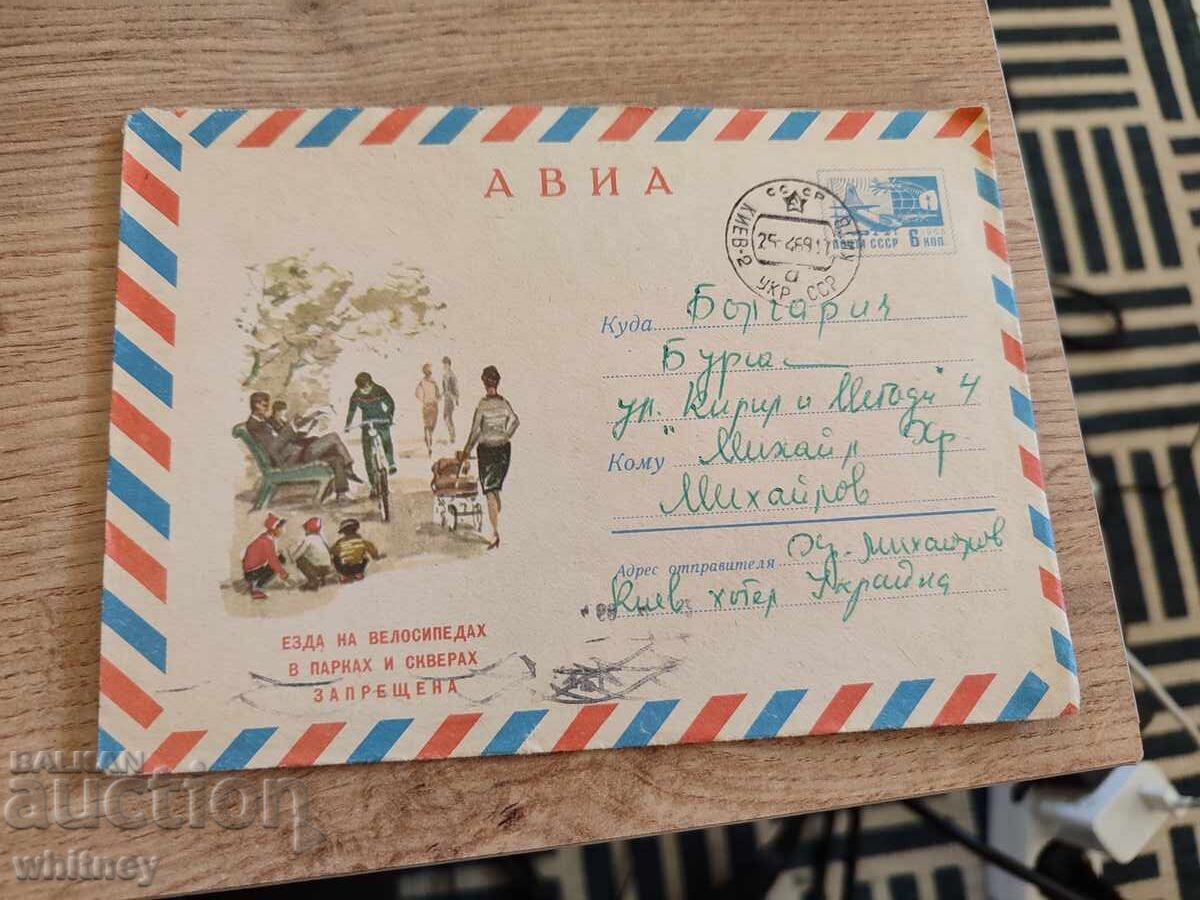 АВИА
СССР
КИЕВ-2
УКР. ССР
ПОЧТА СССР 6 КОП.
Куда Болгария
Бургас
ул. "Кирил и Методи" 4
Кому Михаил Хр.
Михайлов
Адрес отправителя Михайлов
Киев хотел Украйна
ЕЗДА НА ВЕЛОСИПЕДАХ
В ПАРКАХ И СКВЕРАХ
ЗАПРЕЩЕНА
BALKAN
auction
whitney